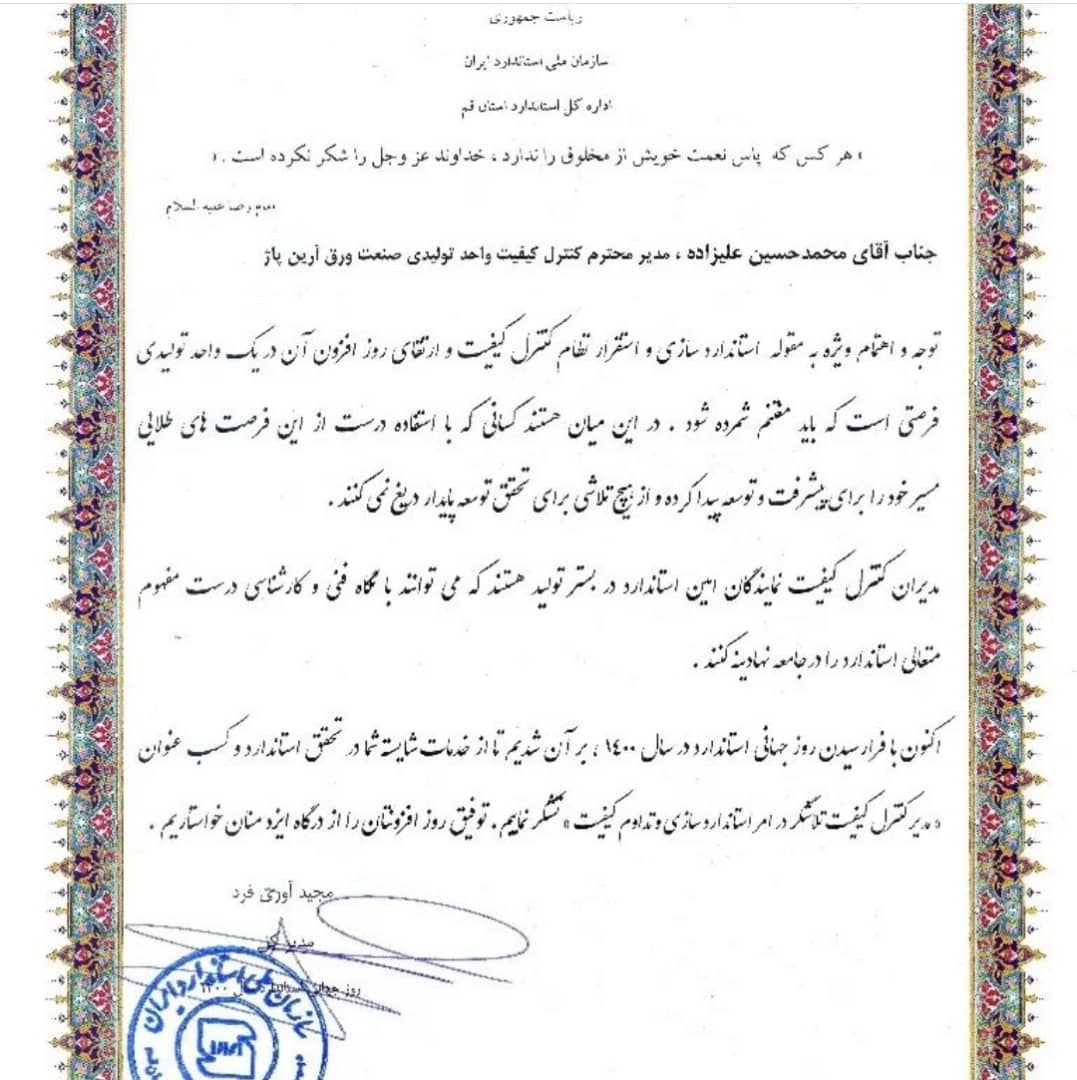 ریاست جمهوری
سازمان ملی استاندارد ایران
اداره کل استاندارد استان قم
« هر کس که پاس نعمت خویش از مخلوق را ندارد ، خداوند عز وجل را شکر نکرده است . »
امام رضا علیه السلام
جناب آقای محمدحسین علیزاده ، مدیر محترم کنترل کیفیت واحد تولیدی صنعت ورق آرین پاژ
توجه و اهتمام ویژه به مقوله استاندارد سازی و استقرار نظام کنترل کیفیت و ارتقای روز افزون آن در یک واحد تولیدی
فرصتی است که باید مغتنم شمرده شود . در این میان هستند کسانی که با استفاده درست از این فرصت های طلایی
مسیر خود را برای پیشرفت و توسعه پیدا کرده و از هیچ تلاشی برای تحقق توسعه پایدار دریغ نمی کنند .
مدیران کنترل کیفیت نمایندگان امین استاندارد در بستر تولید هستند که می توانند با نگاه فنی و کارشناسی درست مفهوم
متعالی استاندارد را در جامعه نهادینه کنند .
اکنون با فرا رسیدن روز جهانی استاندارد در سال ۱۴۰۰ ، بر آن شدیم تا از خدمات شایسته شما در تحقق استاندارد و کسب عنوان
« مدیر کنترل کیفیت تلاشگر در امر استاندارد سازی و تداوم کیفیت » تشکر نماییم . توفیق روز افزونتان را از درگاه ایزد منان خواستاریم .
مجید آوری فرد
مدیر کل
روز جهانی استاندارد سال ۱۴۰۰
سازمان ملی استاندارد ایران